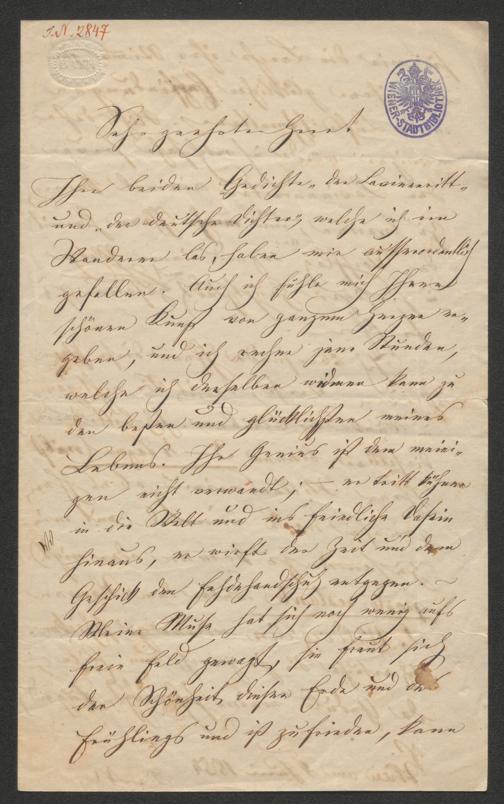 I.N. 2847
WIENER-STADTBIBLIOTHEK
Sehr geehrter Herr!
Ihre beiden Gedichte „der Lavinenritt“
und „der deutsche Dichter“, welche ich im
Wanderer las, haben mir außerordentlich
gefallen. Auch ich fühle mich Ihrer
schönen Kunst von ganzem Herzen er-
geben, und ich rechne jene Stunden,
welche ich derselben widmen kann zu
den besten und glücklichsten meines
Lebens. Ihr Genius ist dem meini-
gen nicht verwandt; – er tritt kühner
in die Welt und ins friedliche Dasein
hinaus, er wirft der Zeit und dem
Geschick den Fehdehandschuh entgegen. –
Meine Muse hat sich noch wenig aufs
freie Feld gewagt, sie freut sich
der Schönheit dieser Erde und des
Frühlings und ist zufrieden, kann